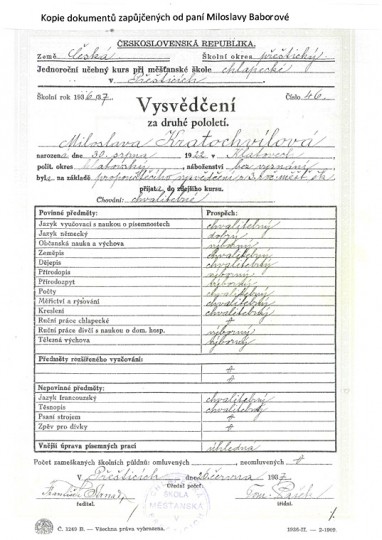 Kopie dokumentů zapůjčených od paní Miloslavy Baborové
ČESKOSLOVENSKÁ REPUBLIKA.
Země Česká Školní okres přeštický
Jednoroční učebný kurs při měšťanské škole chlapecké
v Přešticích
Školní rok 1936/37 Číslo 46.
Vysvědčení
za druhé pololetí.
Miloslava Kratochvílová
narozena dne 30. srpna 1922 v Klatovech
polit. okres Klatovský, náboženství bez vyznání
byla na základě propouštěcího vysvědčení
přijata do zdejšího kursu.
Chování: chvalitebné
Povinné předměty: Prospěch:
Jazyk vyučovací s naukou o písemnostech chvalitebný
Jazyk německý dobrý
Občanská nauka a výchova výborný
Zeměpis chvalitebný
Dějepis chvalitebný
Přírodopis výborný
Přírodozpyt výborný
Počty chvalitebný
Měřictví a rýsování chvalitebný
Kreslení chvalitebný
Ruční práce chlapecké #
Ruční práce dívčí s naukou o dom. hosp. výborný
Tělesná výchova výborný
Předměty rozšířeného vyučování:
#
#
Nepovinné předměty:
Jazyk francouzský chvalitebný
Těsnopis chvalitebný
Psaní strojem #
Zpěv pro dívky #
Vnější úprava písemných prací úhledná
Počet zameškaných školních půldnů: omluvených #, neomluvených #
V Přešticích dne 26. června 1937
ŠKOLA
MĚŠŤANSKÁ
ředitel. třídní.
Č. 1249 B. — Všechna práva vyhrazena. 1936-II.